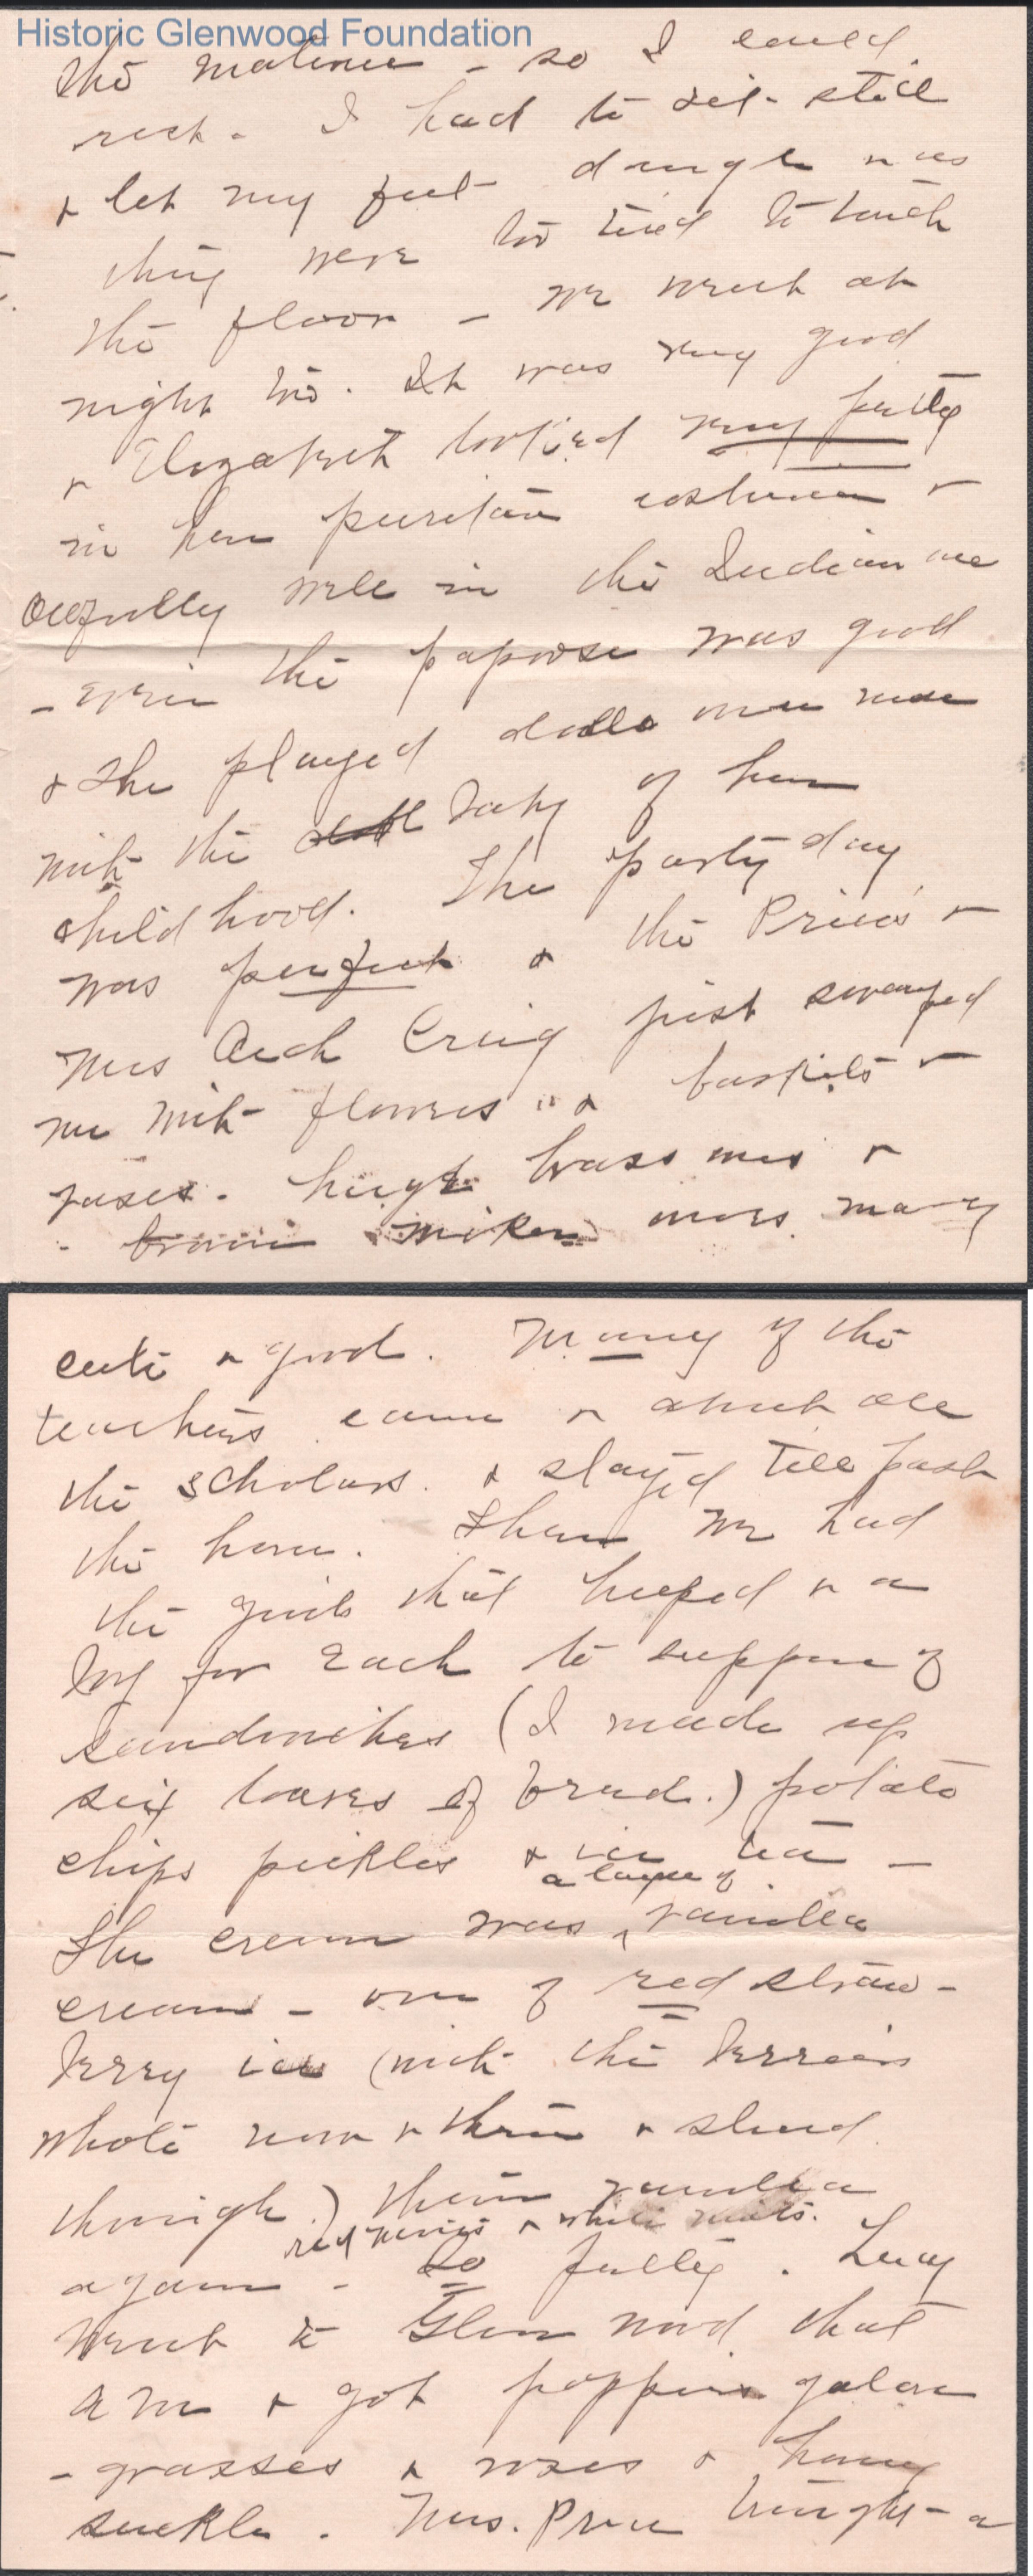 Historic Glenwood Foundation
the matinee - so I could
rest. I had to sit still
& let my feet dangle as
they were too tired to touch
the floor - We went at
night too. It was very good
& Elizabeth looked very pretty
in her puritan costume &
awfully well in the Indian one
- even the papoose was good
& she played dolls once more
with the doll baby of her
childhood. The party day
was perfect & the Prices &
Mrs Arch Craig just swamped
me with flowers & baskets &
vases. huge brass ones &
- brown wicker ones. many
cute & good. Many of the
teachers came & about all
the scholars. & stayed till past
the hour. Then we had
the girls that helped & a
boy for each to supper of
sandwiches (I made up
six loaves of bread.) potato
chips pickles & ice tea -
a layer of
The cream was vanilla
cream - one of red straw-
berry ice (with the berries
whole now & then & sliced
though.) then vanilla
red & white mints.
again - So pretty. Lucy
went to Glenwood that
A M & got poppies galore
- grasses & roses & honey
suckle. Mrs. Price brought a